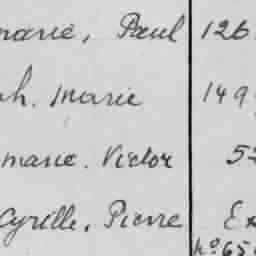 marie, Paul 126
ph. Marie 149
marie. Victor 52
Cyrille, Pierre Ex
no 65